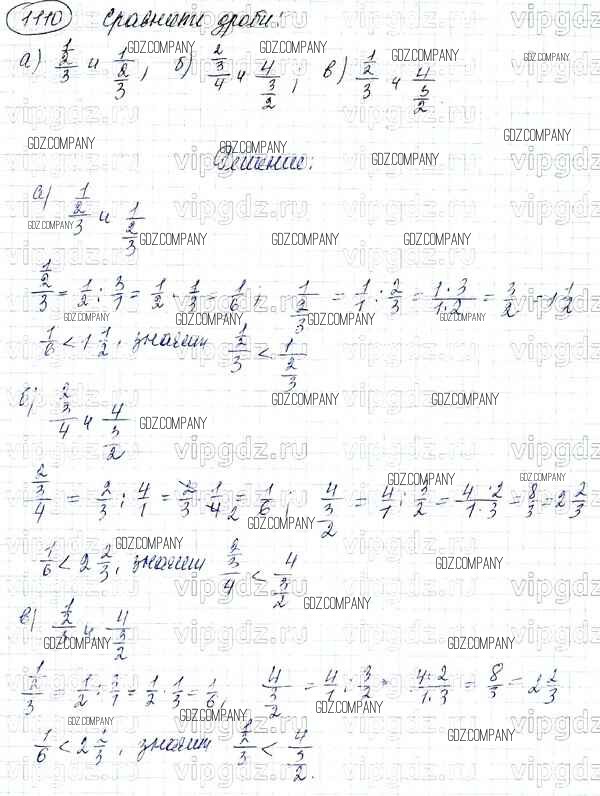 1110 Сравнити дроби:
а) (1/2)/3 и 1/(2/3), б) (2/3)/4 и 4/(3/2), в) (1/2)/3 и 4/(3/2)
Решение:
а) (1/2)/3 и 1/(2/3)
(1/2)/3 = 1/2 : 3/1 = 1/2 · 1/3 = 1/6; 1/(2/3) = 1/1 : 2/3 = 1·3/1·2 = 3/2 = 1 1/2
1/6 < 1 1/2, значит (1/2)/3 < 1/(2/3)
б) (2/3)/4 и 4/(3/2)
(2/3)/4 = 2/3 : 4/1 = 2/3 · 1/4 2 = 1/6; 4/(3/2) = 4/1 : 3/2 = 4·2/1·3 = 8/3 = 2 2/3
1/6 < 2 2/3, значит (2/3)/4 < 4/(3/2)
в) (1/2)/3 и 4/(3/2)
(1/2)/3 = 1/2 : 3/1 = 1/2 · 1/3 = 1/6, 4/(3/2) = 4/1 : 3/2 = 4·2/1·3 = 8/3 = 2 2/3
1/6 < 2 2/3, значит (1/2)/3 < 4/(3/2).
GDZ.COMPANY
vipgdz.ru